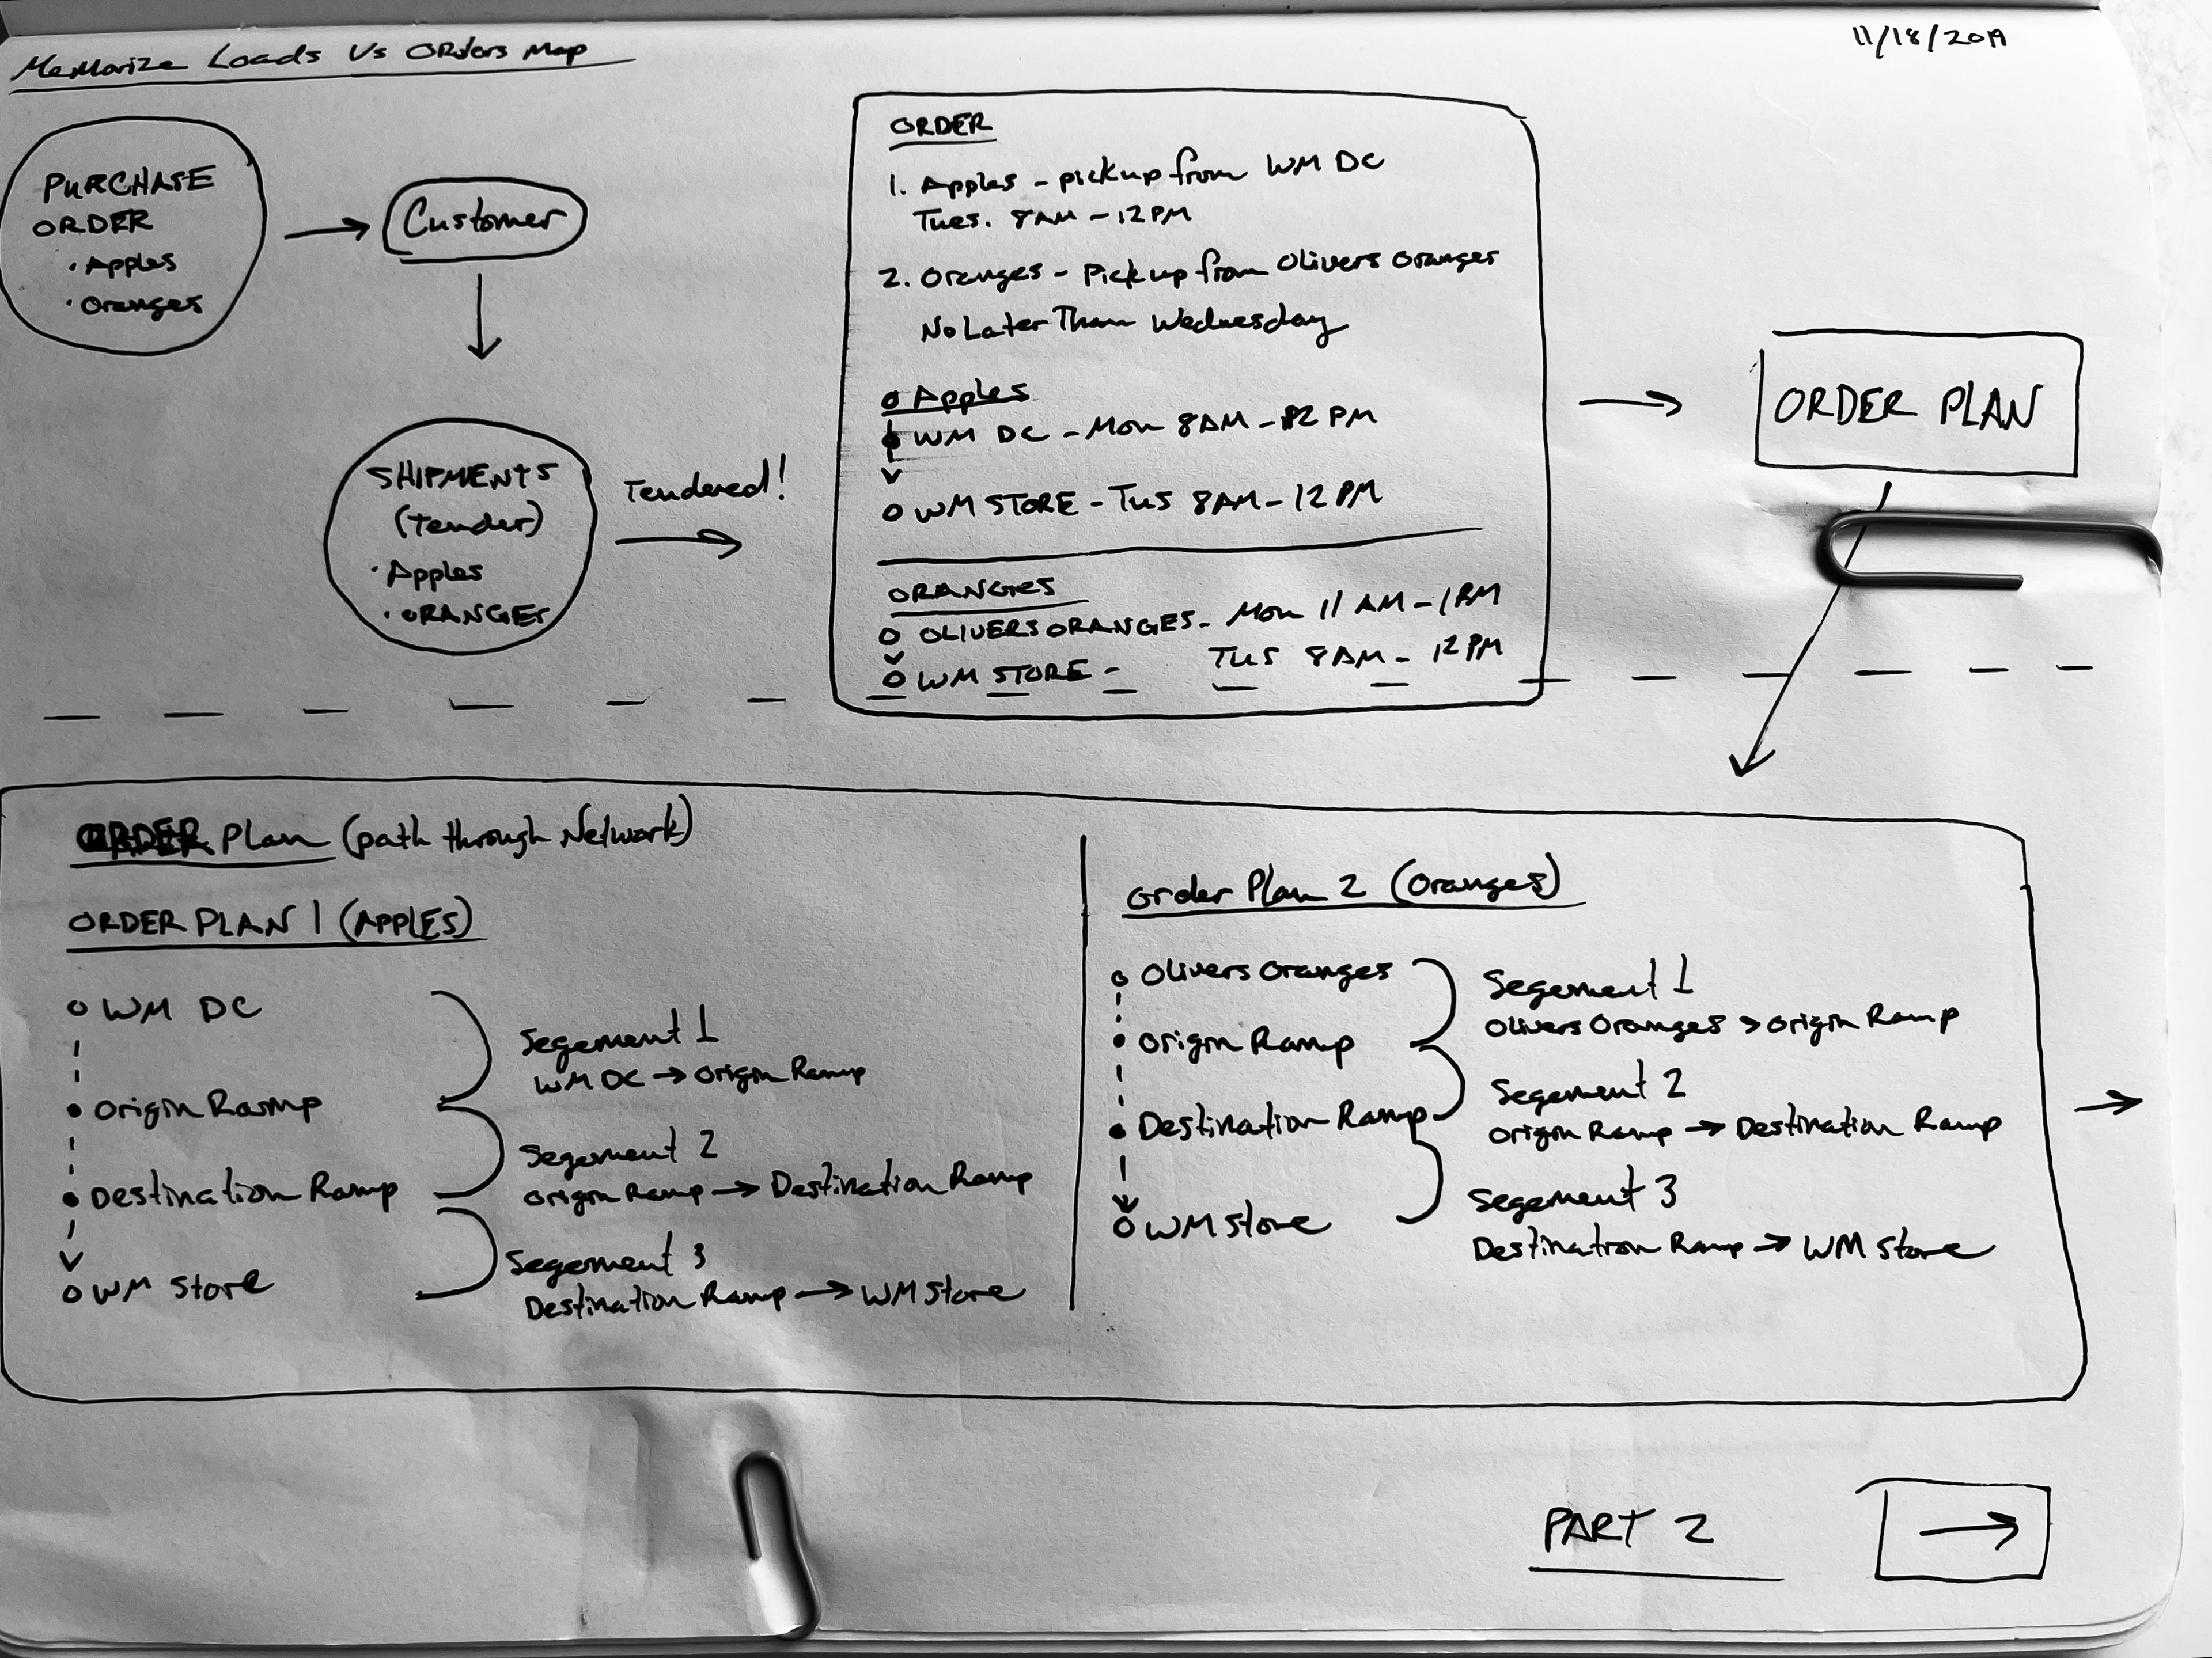 Memorize Loads Vs Orders Map
11/18/2019
PURCHASE
ORDER
• Apples
• Oranges
Customer
SHIPMENTS
(tender)
• Apples
• ORANGES
Tendered!
ORDER
1. Apples - pickup from WM DC
Tues. 8AM - 12PM
2. Oranges - Pickup from Olivers Oranges
No Later Than Wednesday
Apples
WM DC - Mon 8AM - 12 PM
WM STORE - Tus 8AM - 12 PM
ORANGES
OLIVERS ORANGES - Mon 11 AM - 1PM
WM STORE - Tus 8AM - 12PM
ORDER PLAN
ORDER Plan (path through Network)
ORDER PLAN 1 (APPLES)
WM DC
Origin Ramp
Destination Ramp
WM Store
Segement 1
WM DC → Origin Ramp
Segement 2
Origin Ramp → Destination Ramp
Segement 3
Destination Ramp → WM Store
Order Plan 2 (Oranges)
Olivers Oranges
Origin Ramp
Destination Ramp
WM Store
Segement 1
Olivers Oranges > Origin Ramp
Segement 2
Origin Ramp → Destination Ramp
Segement 3
Destination Ramp → WM Store
PART 2 →